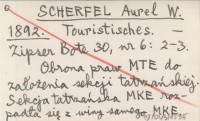 SCHERFEL Aurel W.
1892. Touristisches. —
Zipser Bote 30, nr 6: 2-3.
Obrona praw MTE do
założenia sekcji tatrzańskiej.
Sekcja tatrzańska MKE roz-
padła się z winy samego MKE.